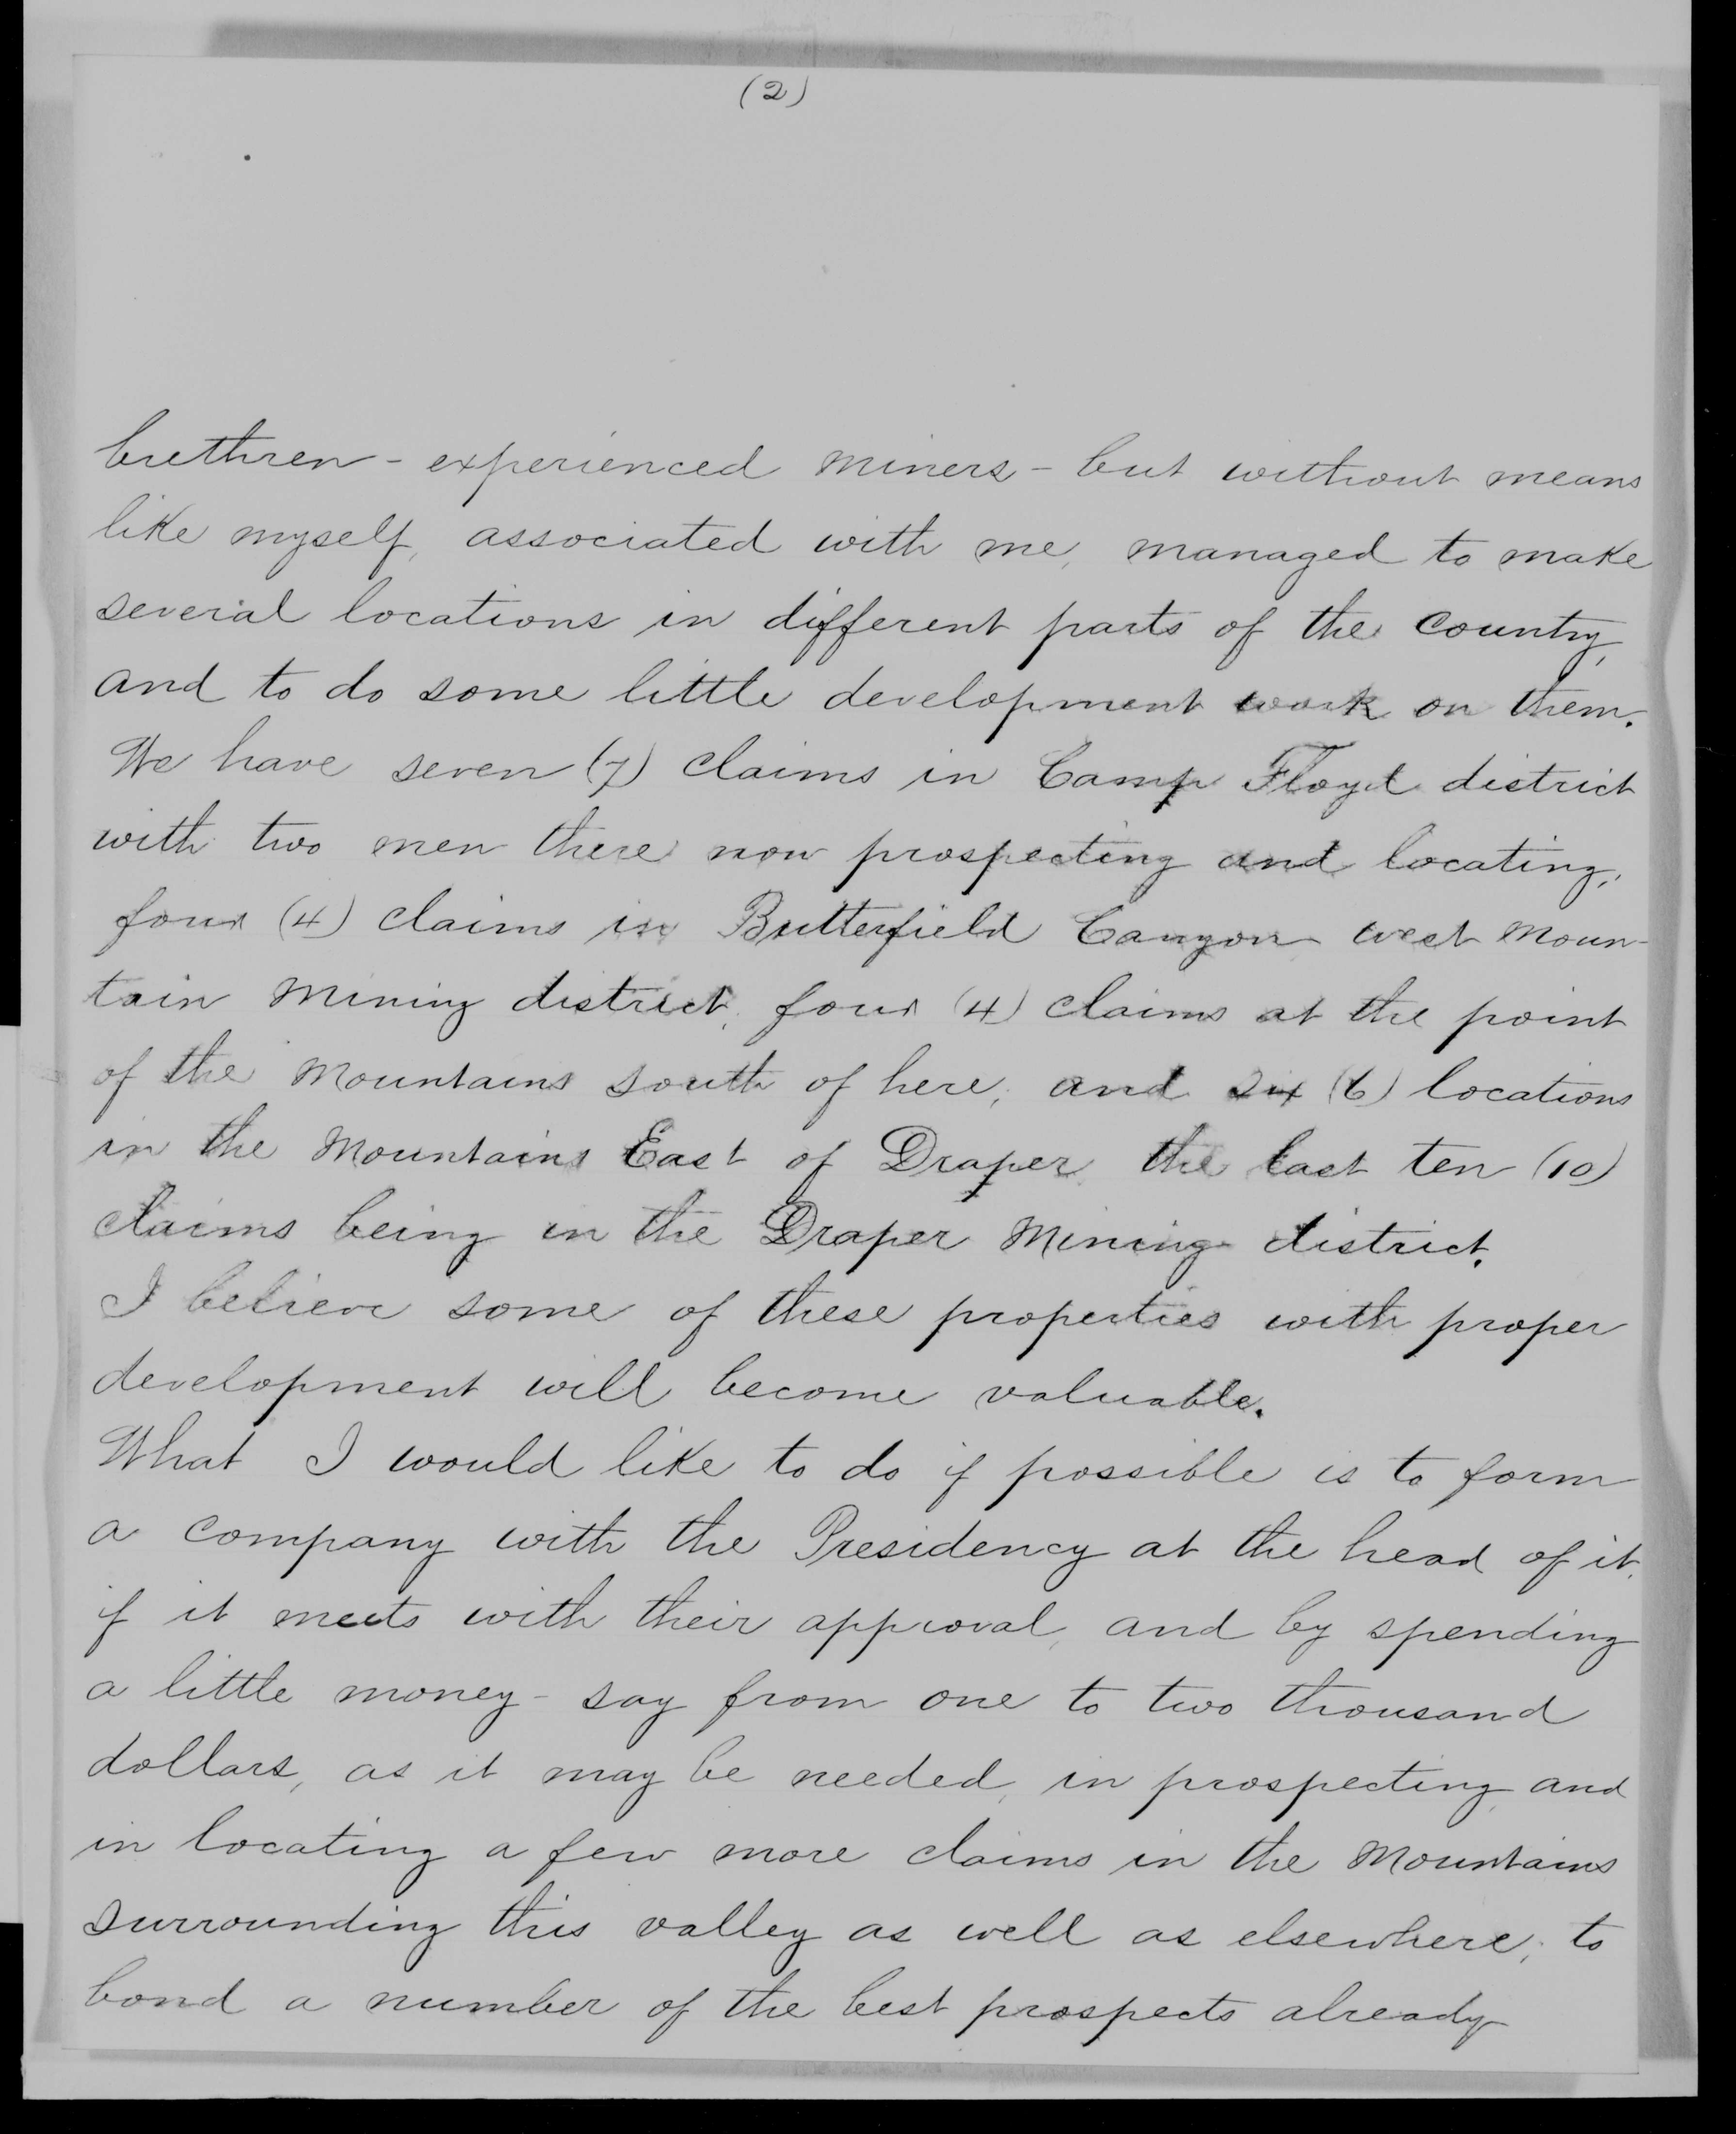 (2)
brethren - experienced miners - but without means
like myself, associated with me, managed to make
several locations in different parts of the country,
and to do some little development work on them.
We have seven (7) claims in Camp Floyd district
with two men there now prospecting and locating;
four (4) claims in Butterfield Canyon west Moun-
tain Mining district, four (4) claims at the point
of the Mountains south of here, and six (6) locations
in the Mountains East of Draper, the last ten (10)
claims being in the Draper Mining district.
I believe some of these properties with proper
development will become valuable.
What I would like to do if possible is to form
a company with the Presidency at the head of it,
if it meets with their approval, and by spending
a little money - say from one to two thousand
dollars, as it may be needed, in prospecting, and
in locating a few more claims in the Mountains
surrounding this valley as well as elsewhere; to
bond a number of the best prospects already